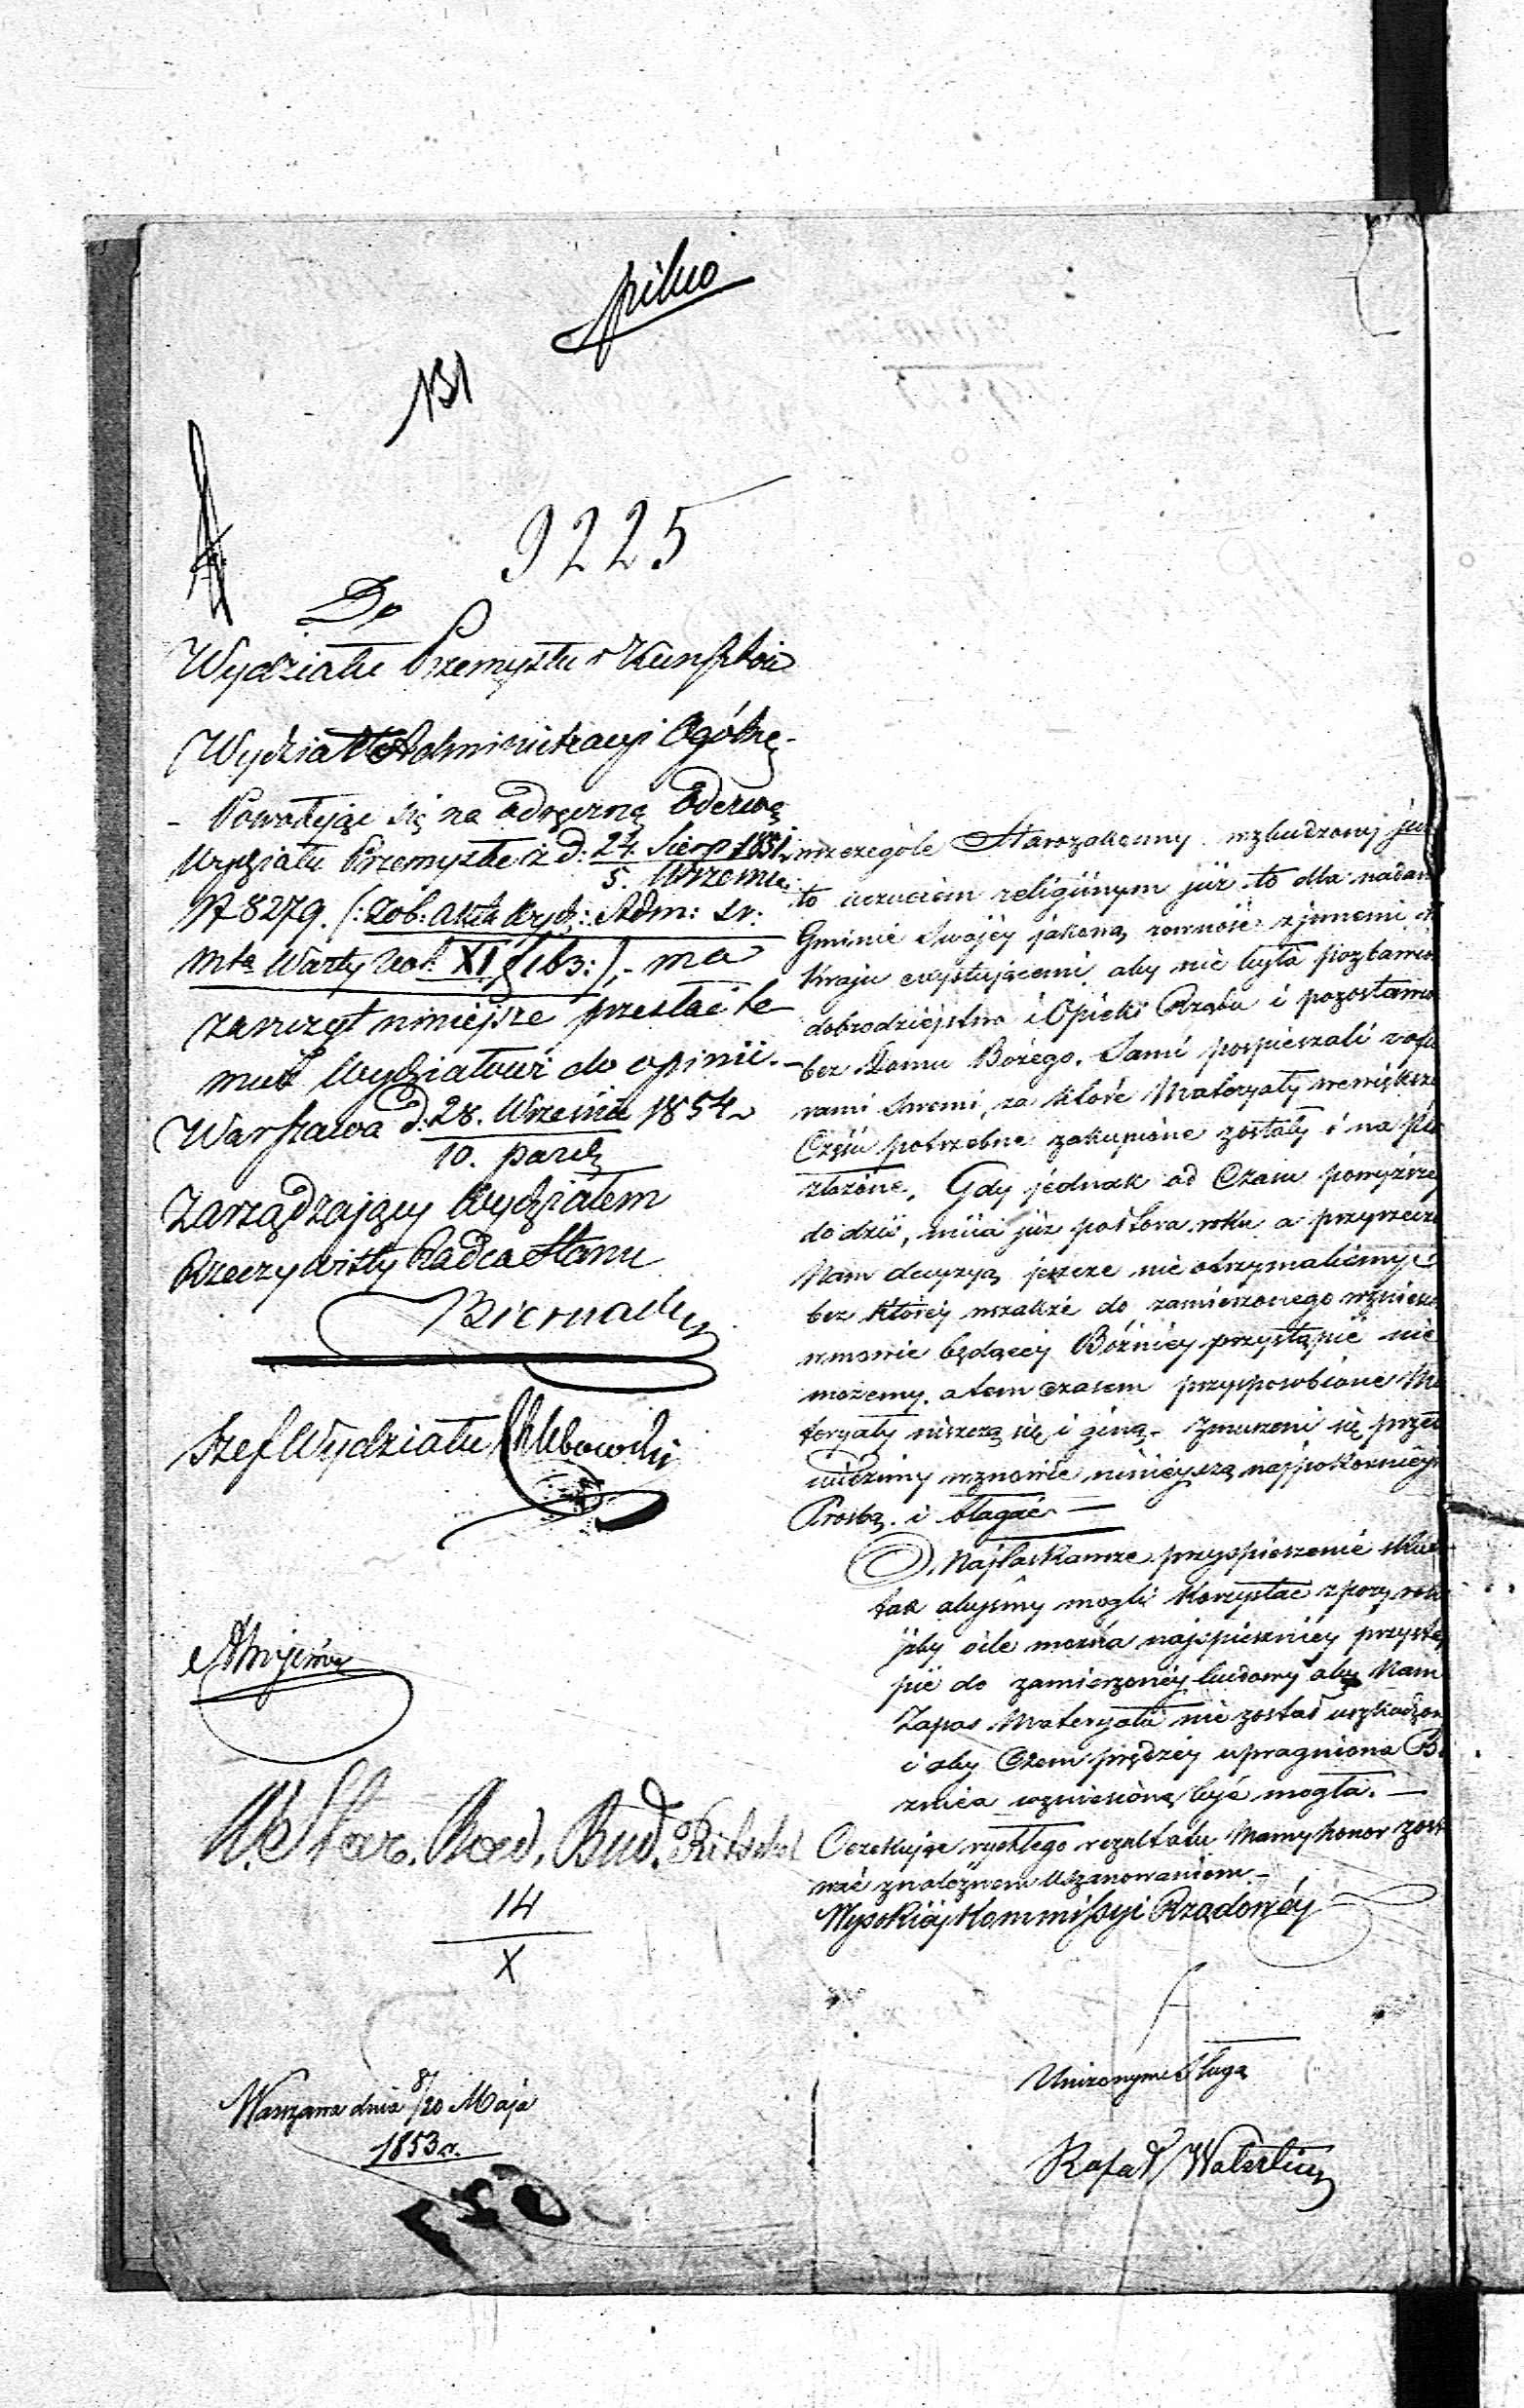 pilno
131
9225
Do
Wydziału Przemysłu i Kunsztów
Wydział Administracyi Ogólnéj
- Powołując się na odręczną Odezwę
Wydziału Przemysłu z d: 24. Sierp. 1851
5. Wrześn:
N 8279. (: Zob: Akta Wydz: Adm: sv.
mta Warty Vol: XI f 163:),- ma
zaszczyt niniejsze przesłać te-
muż Wydziałowi do opinii.-
Warszawa d. 28. Wrześnie 1854
10. paźdz
Zarządzający Wydziałem
Rzeczywisty Radca Stanu
Biernacki
Szef Wydziału Chlebowski
14
X
Warszawa dnia 8/20 Maja
1853 r.
wszczególe Starozakonny wzbudzony już
to uczuciem religiinym już to dla nadan
Gminie Swojéj jakową równość z innemi w
Kraju exystującemi, aby nie była pozbawio
dobrodziejstwa i Opieki Rządu i pozostawio
bez Domu Bożego. Sami pospieszali z ofia
rami swemi, za które Materyały wewiększe
Części potrzebne zakupione zostały i na plac
złożone. Gdy jednak od Czasu powyższeg
do dziś, miia już półtora roku a przyrzeczo
Nam decyzyą jeszcze nie otrzymaliśmy,
bez któréj wszakże do zamierzonego wzniesie
w mowie będącéj Bóźnicy przystąpić nie
możemy, a tem czasem przysposobione Ma
teryały niszczą się i giną - Zmuszeni się przeto
widzimy wznowić niniéyszą najpokornieysz
Prośbą i błagać —
O Najłaskawsze przyspieszenie skut
tak abyśmy mogli korzystać z pory roku
iżby oile można najspieszniéy przystą
pić do zamierzonéy budowy aby Nam
Zapas Materyału nie został uszkodzon
i aby Czem prędzéy upragniona Bó
żnica wzniesioną być mogła. —
Oczekując rychłego rezultatu Mamy honor zosta
wać z należnem uszanowaniem.-
Wysokiéj Kommissyi Rządowéy
Uniżonym Sługą
Rafał